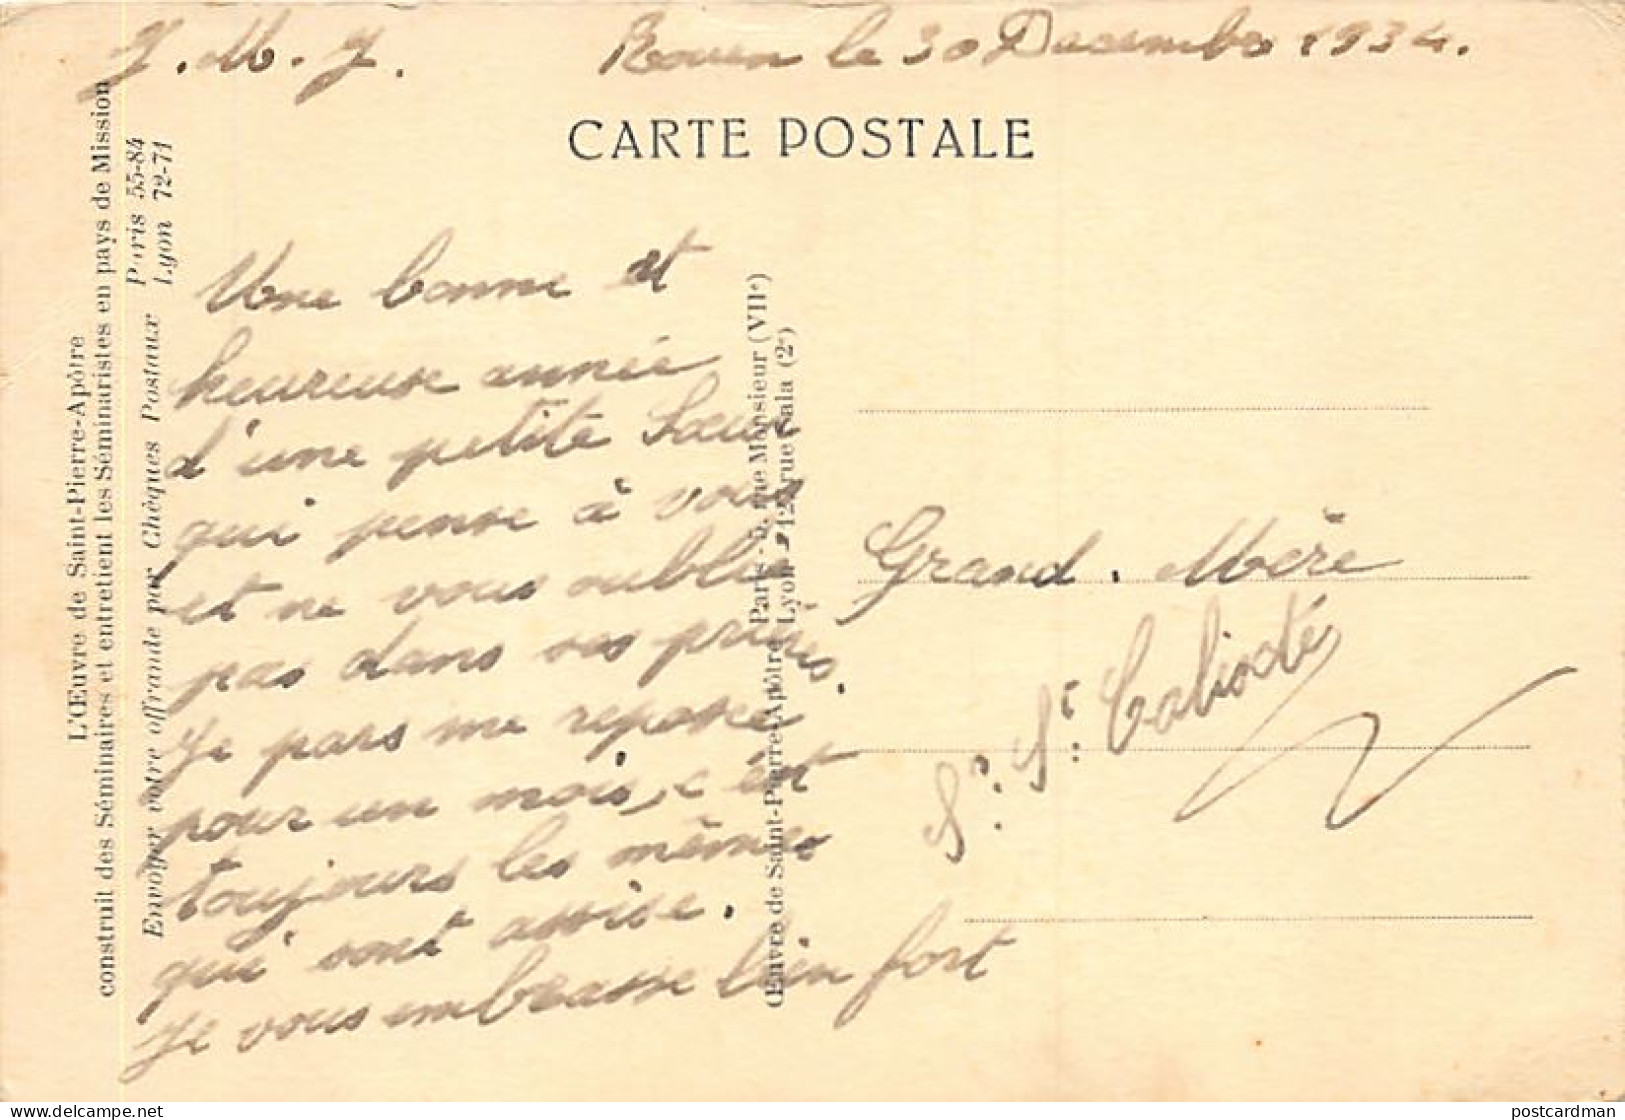 J. M. J.
Rouen le 30 Décembre 1934.
CARTE POSTALE
L'Œuvre de Saint-Pierre-Apôtre
construit des Séminaires et entretient les Séminaristes en pays de Mission
Envoyer votre offrande par Chèques Postaux Paris 55-84
Lyon 72-71
Une bonne et
heureuse année
d'une petite Sœur
qui pense à vous
et ne vous oublie
pas dans ses prières.
Je pars me reposer
pour un mois, c'est
toujours les mêmes
qui sont assise.
Je vous embrasse bien fort
Œuvre de Saint-Pierre-Apôtre Paris - 5, rue Monsieur (VIIe)
Lyon - 12, rue Sala (2e)
Grand. Mère
Sr. St.
postcardman